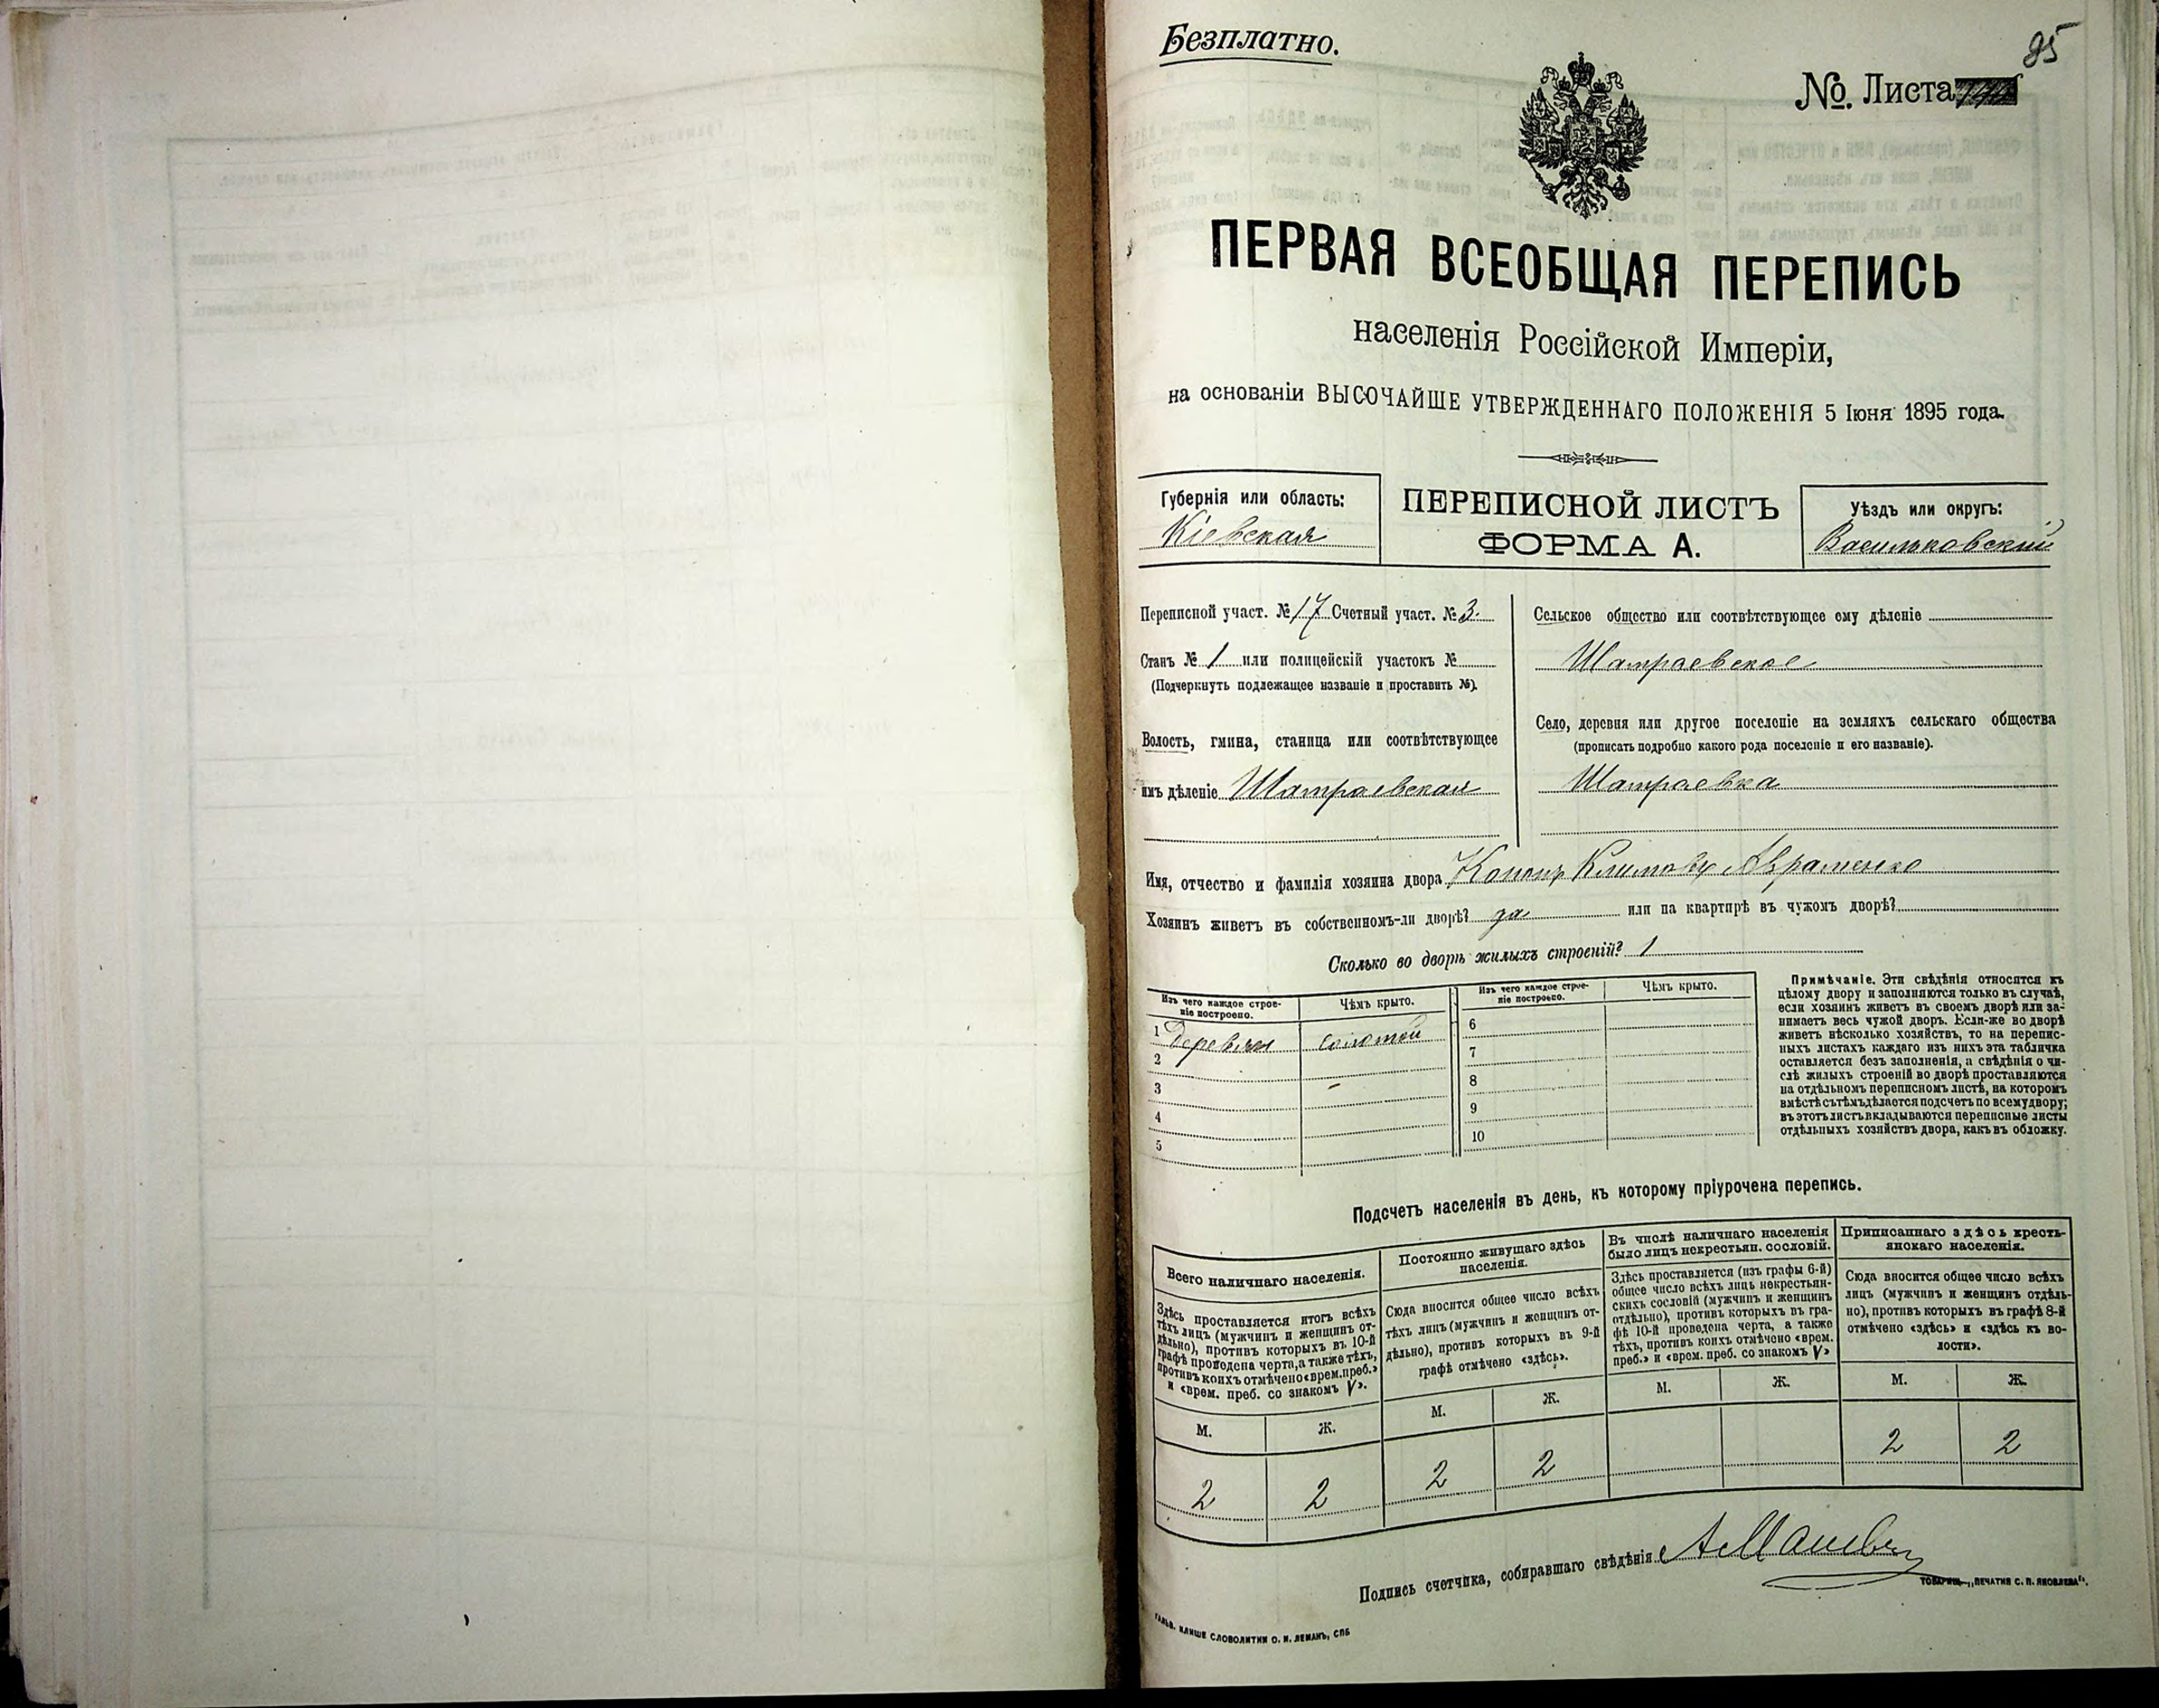 Безплатно.
95
№. Листа
ПЕРВАЯ ВСЕОБЩАЯ ПЕРЕПИСЬ
населенія Россійской Имперіи,
на основаніи ВЫСОЧАЙШЕ УТВЕРЖДЕННАГО ПОЛОЖЕНІЯ 5 Іюня 1895 года.
Губернія или область:
Кіевская
ПЕРЕПИСНОЙ ЛИСТЪ
ФОРМА А.
Уѣздъ или округъ:
Васильковскій
Переписной участ. № 17 Счетный участ. № 3.
Станъ № 1 или полицейскій участокъ №
(Подчеркнуть подлежащее названіе и проставить №).
Волость, гмина, станица или соотвѣтствующее
имъ дѣленіе Шамраевская
Сельское общество или соотвѣтствующее ему дѣленіе
Шамраевское
Село, деревня или другое поселеніе на земляхъ сельскаго общества
(прописать подробно какого рода поселеніе и его названіе).
Шамраевка
Имя, отчество и фамилія хозяина двора Кононъ Климовъ Авраменко
Хозяинъ живетъ въ собственномъ-ли дворѣ? да или на квартирѣ въ чужомъ дворѣ?
Сколько во дворѣ жилыхъ строеній? 1
Изъ чего каждое строе-
ніе построено.
Чѣмъ крыто.
1 деревян соломой
2
3
4
5
Изъ чего каждое строе-
ніе построено.
Чѣмъ крыто.
6
7
8
9
10
Примѣчаніе. Эти свѣдѣнія относятся къ
цѣлому двору и заполняются только въ случаѣ,
если хозяинъ живетъ въ своемъ дворѣ или за-
нимаетъ весь чужой дворъ. Если-же во дворѣ
живетъ нѣсколько хозяйствъ, то на перепис-
ныхъ листахъ каждаго изъ нихъ эта табличка
оставляется безъ заполненія, а свѣдѣнія о чи-
слѣ жилыхъ строеній во дворѣ проставляются
на отдѣльномъ переписномъ листѣ, на которомъ
вмѣстѣ съ тѣмъ дѣлается подсчетъ по всему двору;
въ этотъ листъ вкладываются переписные листы
отдѣльныхъ хозяйствъ двора, какъ въ обложку.
Подсчетъ населенія въ день, къ которому пріурочена перепись.
Всего наличнаго населенія.
Здѣсь проставляется итогъ всѣхъ
тѣхъ лицъ (мужчинъ и женщинъ от-
дѣльно), противъ которыхъ въ 10-й
графѣ проведена черта, а также тѣхъ,
противъ коихъ отмѣчено «врем. преб.»
и «врем. преб. со знакомъ V».
М. Ж.
2 2
Постоянно живущаго здѣсь
населенія.
Сюда вносится общее число всѣхъ
тѣхъ лицъ (мужчинъ и женщинъ от-
дѣльно), противъ которыхъ въ 9-й
графѣ отмѣчено «здѣсь».
М. Ж.
2 2
Въ числѣ наличнаго населенія
было лицъ некрестьян. сословій.
Здѣсь проставляется (изъ графы 6-й)
общее число всѣхъ лицъ некрестьян-
скихъ сословій (мужчинъ и женщинъ
отдѣльно), противъ которыхъ въ гра-
фѣ 10-й проведена черта, а также
тѣхъ, противъ коихъ отмѣчено «врем.
преб.» и «врем. преб. со знакомъ V»
М. Ж.
Приписаннаго здѣсь кресть-
янскаго населенія.
Сюда вносится общее число всѣхъ
лицъ (мужчинъ и женщинъ отдѣль-
но), противъ которыхъ въ графѣ 8-й
отмѣчено «здѣсь» и «здѣсь къ во-
лости».
М. Ж.
2 2
Подпись счетчика, собиравшаго свѣдѣнія
ТОВАРИЩ. „ПЕЧАТНЯ С. П. ЯКОВЛЕВА".
ГАЛЬВ. КЛИШЕ СЛОВОЛИТНИ О. И. ЛЕМАНЪ, СПБ